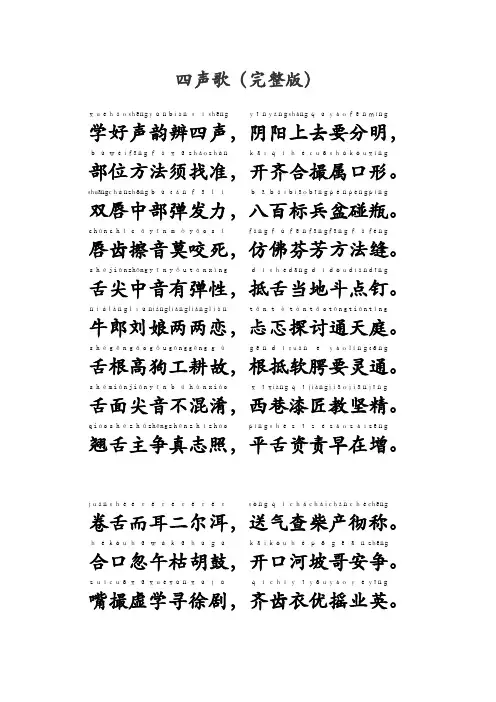 四声歌（完整版）
xuéhǎoshēngyùnbiànsìshēng yīnyángshàngqùyàofēnmíng
学好声韵辨四声，阴阳上去要分明，
bùwèifāngfǎxūzhǎozhǔn kāiqíhécuōshǔkǒuxíng
部位方法须找准，开齐合撮属口形。
shuāngchúnzhōngbùtánfālì bābǎibiāobīngpénpèngpíng
双唇中部弹发力，八百标兵盆碰瓶。
chúnchǐcāyīnmòyǎosǐ fǎngfúfēnfāngfāngfǎféng
唇齿擦音莫咬死，仿佛芬芳方法缝。
shéjiānzhōngyīnyǒutánxìng dǐshédāngdìdòudiǎndīng
舌尖中音有弹性，抵舌当地斗点钉。
niúlángliúniángliǎngliǎngliàn tǎntètàntǎotōngtiāntíng
牛郎刘娘两两恋，忐忑探讨通天庭。
shégēngāogǒugōnggēnggù gēndǐruǎnèyàolíngtōng
舌根高狗工耕故，根抵软腭要灵通。
shémiànjiānyīnbùhùnxiáo xīxiàngqījiàngjiāojiānjīng
舌面尖音不混淆，西巷漆匠教坚精。
qiàoshézhǔzhēngzhēnzhìzhào píngshézīzézǎozàizēng
翘舌主争真志照，平舌资责早在增。
juǎnshéérěrèrěrěr sòngqìcháchàichǎnchèchēng
卷舌而耳二尔洱，送气查柴产彻称。
hékǒuhūwǔkūhúgǔ kāikǒuhépōgēānzhēng
合口忽午枯胡鼓，开口河坡哥安争。
zuǐcuōxūxuéxúnxújù qíchǐyīyōuyáoyèyīng
嘴撮虚学寻徐剧，齐齿衣优摇业英。